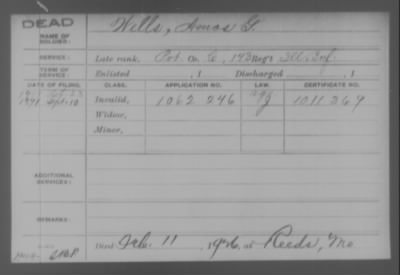 DEAD
NAME OF SOLDIER: Wells, Amos G.
SERVICE: Late rank, Pvt. Co. C, 143 Reg't Ill. Inf.
TERM OF SERVICE: Enlisted , 1 Discharged , 1
DATE OF FILING. CLASS. APPLICATION NO. LAW. CERTIFICATE NO.
1891 Sept. 10 Invalid, 1062 246 1011 269
Widow,
Minor,
ADDITIONAL SERVICES:
REMARKS:
Died Feb. 11, 1926, at Reeds, Mo